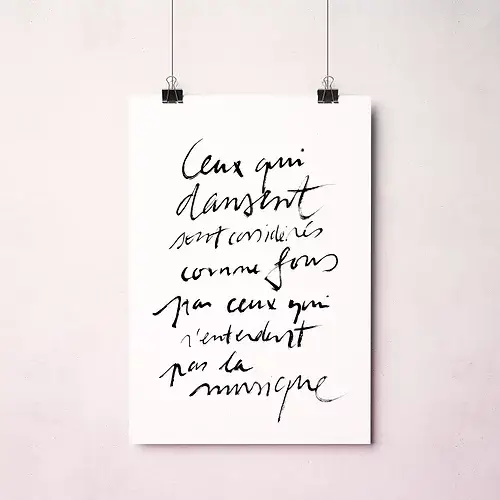 Ceux qui
dansent
sont considérés
comme fous
par ceux qui
n'entendent
pas la
musique